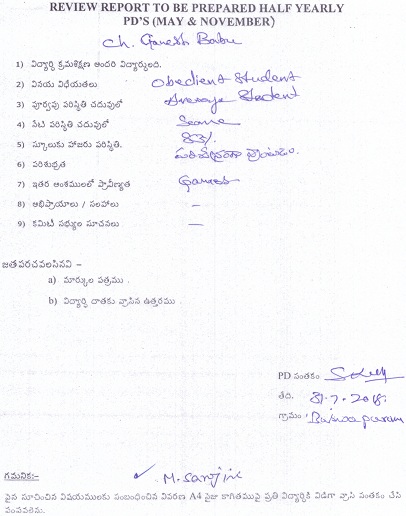 REVIEW REPORT TO BE PREPARED HALF YEARLY
PD'S (MAY & NOVEMBER)
Ch. Ganesh Babu
1) విద్యార్థి క్రమశిక్షణ అందరి విద్యార్థులది.
2) వినయ విధేయతలు Obedient Student
3) పూర్వపు పరిస్థితి చదువులో Average Student
4) నేటి పరిస్థితి చదువులో Same
5) స్కూలుకు హాజరు పరిస్థితి. 83%
6) పరిశుభ్రత
7) ఇతర అంశములలో ప్రావీణ్యత Games
8) అభిప్రాయాలు / సలహాలు –
9) కమిటీ సభ్యుల సూచనలు –
జతపరచవలసినవి –
a) మార్కుల పత్రము .
b) విద్యార్థి దాతకు వ్రాసిన ఉత్తరము .
PD సంతకం
తేది. 31-7-2018.
గ్రామం
గమనిక:- ✓ M. Sarojini
పైన సూచించిన విషయములకు సంబంధించిన వివరణ A4 సైజు కాగితముపై ప్రతి విద్యార్థికి విడిగా వ్రాసి సంతకం చేసి
పంపవలెను.